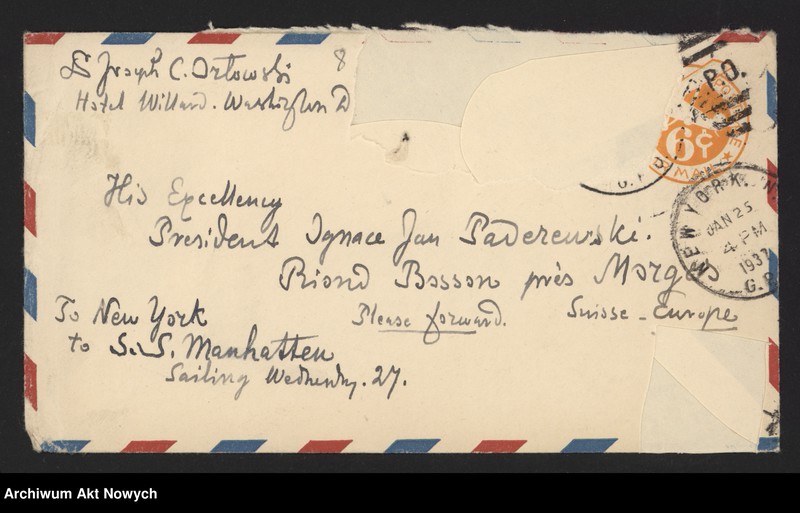 Joseph C. Orłowski 8
Hotel Willard. Washington D
P.O.
6¢
MAIL
NEW YORK, N.Y.
JAN 25
4 PM
1937
G.P.
His Excellency
President Ignace Jan Paderewski.
Riond Bosson près Morges
Suisse - Europe
Please forward.
To New York
to S.S. Manhatten
Sailing Wednesday. 27.
Archiwum Akt Nowych